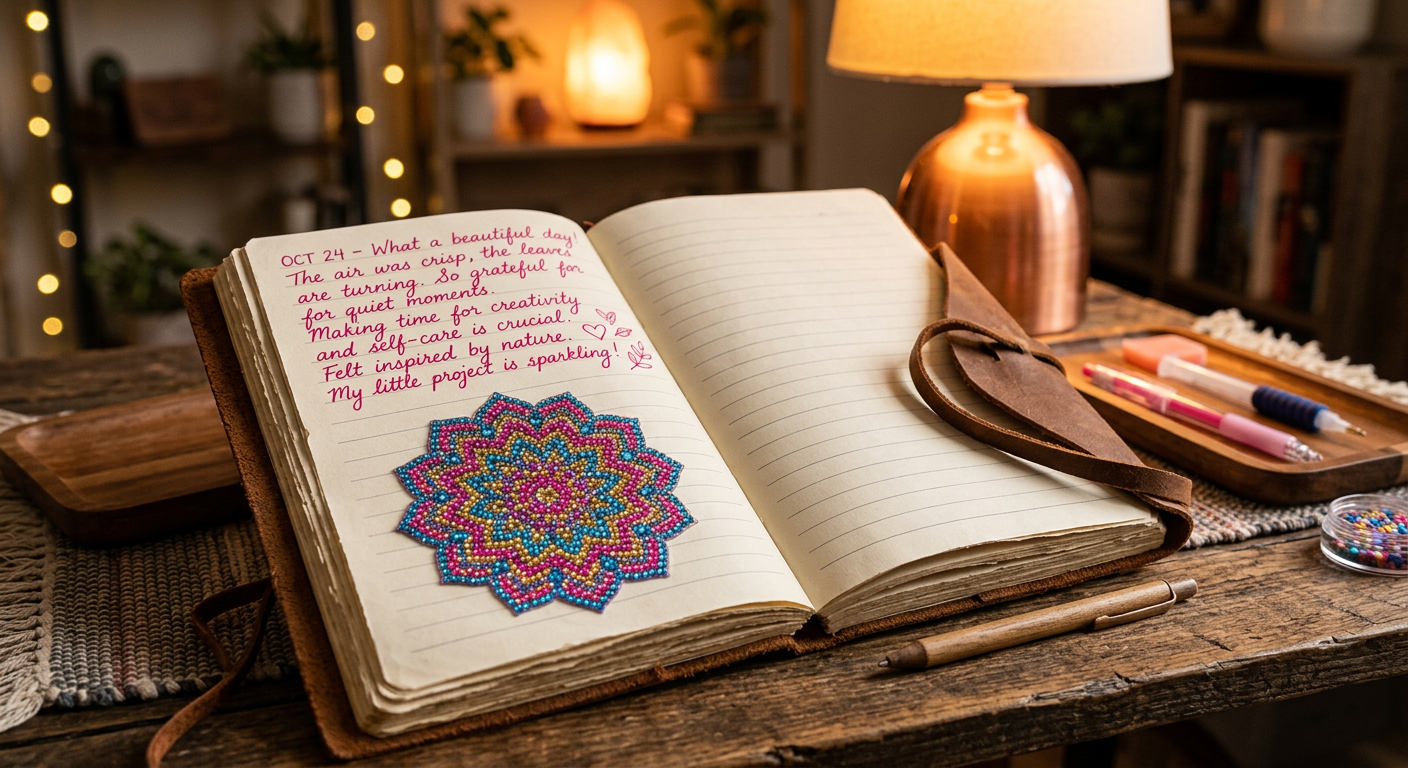 OCT 24 – What a beautiful day!
The air was crisp, the leaves
are turning. So grateful for
for quiet moments.
Making time for creativity
and self-care is crucial.
Felt inspired by nature.
My little project is sparkling!